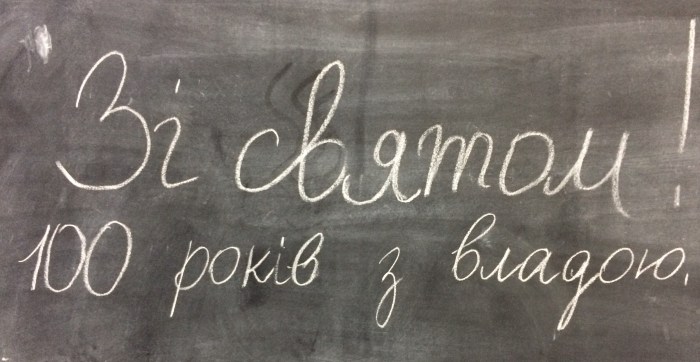 Зі святом!
100 років з владою.